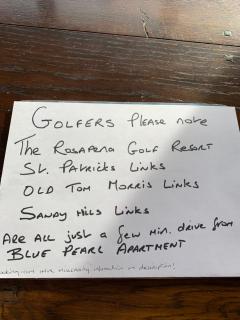 GOLFERS Please note
The ROSAPENA GOLF RESORT
St. Patricks Links
OLD TOM MORRIS LINKS
SANDY HILLS LINKS
ARE ALL just a few min. drive from
BLUE PEARL APARTMENT